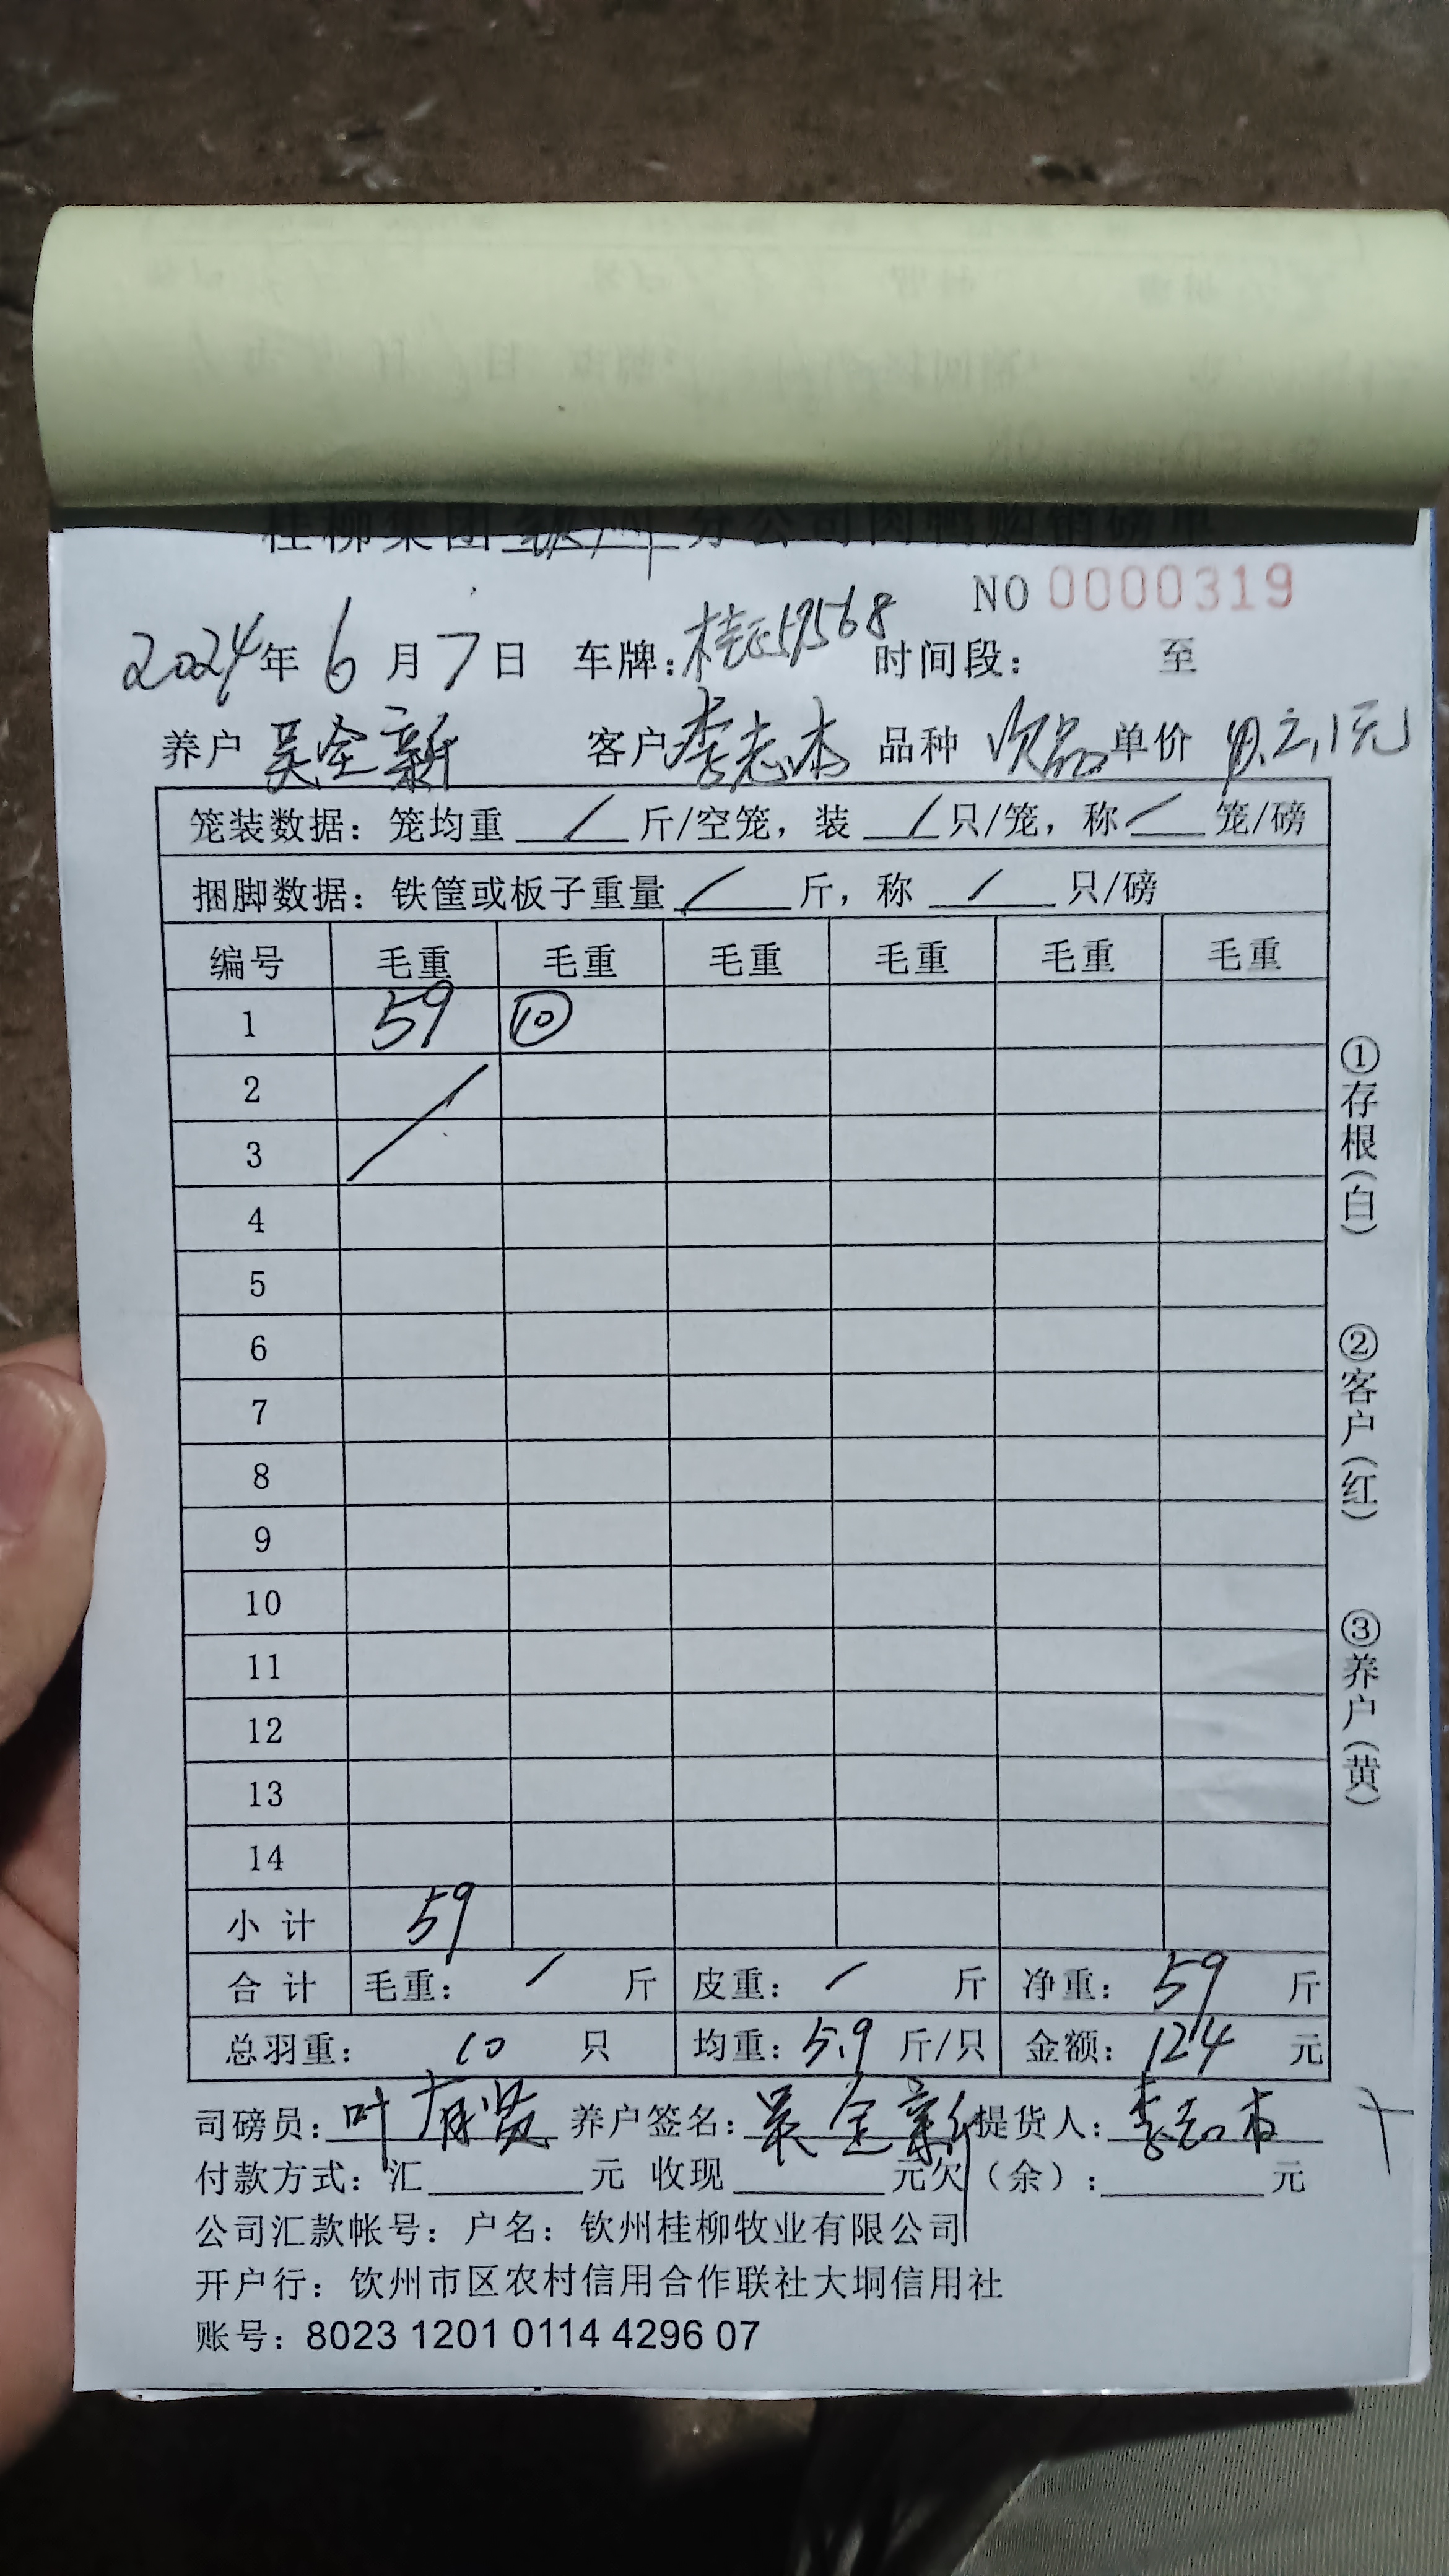 桂柳集团钦州分公司肉鸭购销磅单
NO 0000319
2024年 6 月 7 日 车牌: 59568 时间段: 至
养户 吴全新 客户 李志杰 品种 次品 单价 2.1元
笼装数据: 笼均重 / 斤/空笼, 装 / 只/笼, 称 / 笼/磅
捆脚数据: 铁筐或板子重量 / 斤, 称 / 只/磅
编号 毛重 毛重 毛重 毛重 毛重 毛重
1 59 ⑩
2
3
4
5
6
7
8
9
10
11
12
13
14
小计 59
合计 毛重: / 斤 皮重: / 斤 净重: 59 斤
总羽重: 10 只 均重: 5.9 斤/只 金额: 124 元
司磅员: 叶有贤 养户签名: 吴全新 提货人: 李志杰
付款方式: 汇 元 收现 元欠(余): 元
公司汇款帐号: 户名: 钦州桂柳牧业有限公司
开户行: 钦州市区农村信用合作联社大垌信用社
账号: 8023 1201 0114 4296 07
①存根(白)
②客户(红)
③养户(黄)